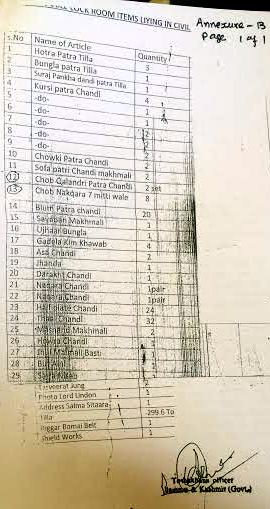 LOCK ROOM ITEMS LIYING IN CIVIL
Annexure - B
Page 1 of 1
S.No Name of Article Quantity
1 Hotra Patra Tilla 1
2 Bungla patra Tilla 1
3 Suraj Pankha dandi patra Tilla 1
4 Kursi patra Chandi 4
5 -do- 1
6 -do- 1
7 -do-
8 -do- 2
9 -do- 2
10 Chowki Patra Chandi 2
11 Sofa patri Chandi makhmali 2
12 Chob Qalandri Patra Chandi 2 set
13 Chob Nakqara 7 mitti wale 8
14 Patra chandi 20
15 Sayaban Makhmali 1
16 Ujhaal Bungla 1
17 Gadela Kim Khawab 4
18 Asa Chandi 2
19 Jhanda 1
20 Darakht Chandi 1
21 Naqara Chandi 1pair
22 Naqara Chandi 1pair
23 Half plate Chandi 24
24 Chandi 32
25 Masnand Makhmali 2
26 Howda Chandi 1
27 Jhul Malmali Basti
28
29
Tasveerat Jung 2
Photo Lord Lindon 1
Address Salma Sitaara 1
Tilla 299.6 To
Biggar Bamai Belt 1
Shield Works 1
Toshakhana officer
Jammu & Kashmir (Govt.)